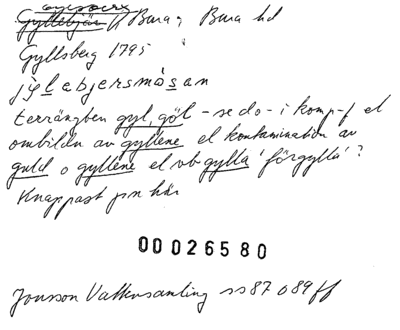 Gyllebjär // Bara ; Bara hd
Gyllsberg 1795
jy̆lebjersmåsan
terrängben gyl, göl - se do - i komp-f el
ombildn av gyllene el kontamination av
guld o gyllene el vb gylla 'förgylla' ?
Knappast pn här
00026580
Jonsson Vattensamling ss 87 o 89 ff